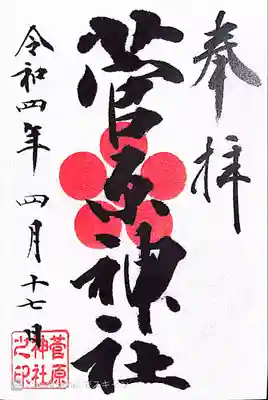 奉拝
菅原神社
令和四年四月十七日
菅原
神社
之印